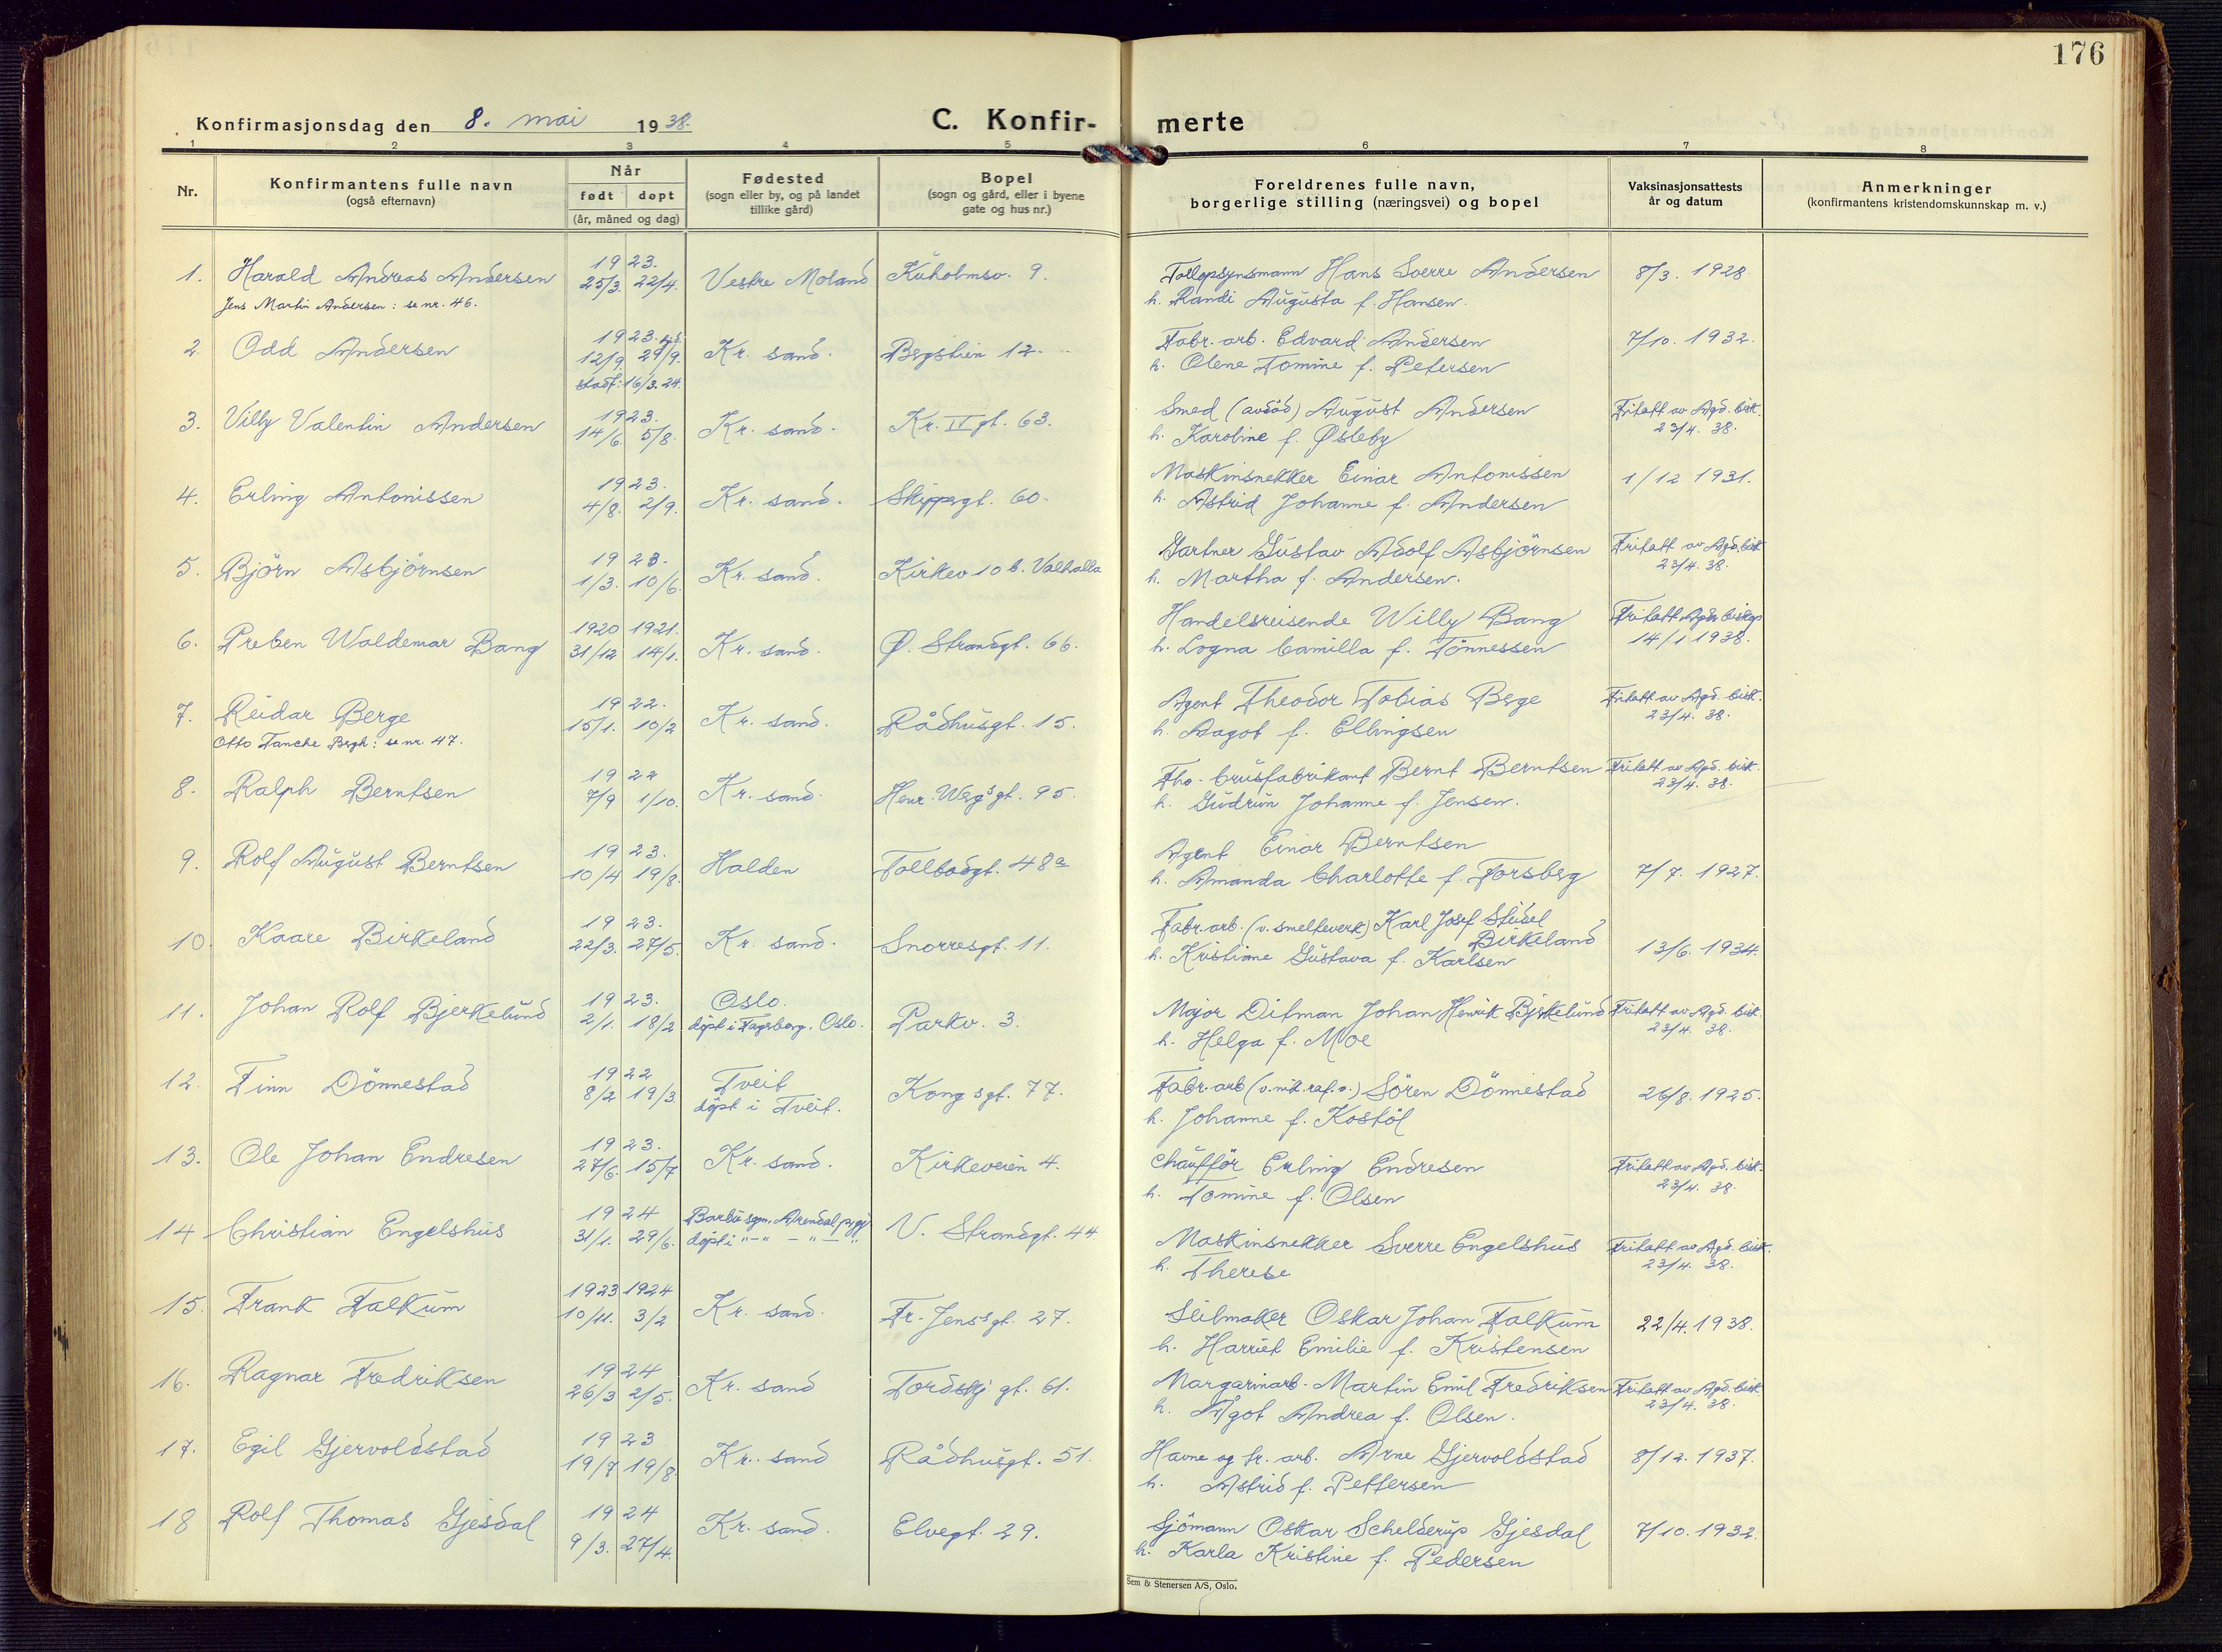 176
Konfirmasjonsdag den 8. mai 1938.
C. Konfir-merte
1 2 3 4 5 6 7 8
Nr.
Konfirmantens fulle navn
(også efternavn)
Når
født døpt
(år, måned og dag)
Fødested
(sogn eller by, og på landet
tillike gård)
Bopel
(sogn og gård, eller i byene
gate og hus nr.)
Foreldrenes fulle navn,
borgerlige stilling (næringsvei) og bopel
Vaksinasjonsattests
år og datum
Anmerkninger
(konfirmantens kristendomskunnskap m. v.)
1. Harald Andreas Andersen 1923. 25/3. 22/4. Vestre Moland Kuholmsv. 9. Tollopsynsmann Hans Sverre Andersen 8/3. 1928.
Jens Martin Andersen: se nr. 46. h. Randi Augusta f. Hansen.
2. Odd Andersen 1923. 12/9. 29/9. Kr. sand. Bergstien 12. Fabr. arb. Edvard Andersen 7/10. 1932.
stadf: 16/3. 24. h. Olene Tomine f. Petersen
3. Villy Valentin Andersen 1923. 14/6. 5/8. Kr. sand. Kr. IV gt. 63. Smed (avdöd) August Andersen Fritatt av Agd. bisk.
h. Karoline f. Øsleby 23/4. 38.
4. Erling Antonissen 1923. 4/8. 2/9. Kr. sand. Skippergt. 60. Maskinsnekker Einar Antonissen 1/12 1931.
h. Astrid Johanne f. Andersen
5. Björn Asbjörnsen 1923. 1/3. 10/6. Kr. sand. Kirkev 10 b. Valhalla Gartner Gustav Adolf Asbjörnsen Fritatt av Agd. bisk.
h. Martha f. Andersen. 23/4. 38.
6. Preben Waldemar Bang 1920 1921. 31/12 14/1. Kr. sand. Ø. Strandgt. 66. Handelsreisende Willy Bang Fritatt Agder biskop
h. Logna Camilla f. Tönnessen 14/1 1938.
7. Reidar Berge 1922. 15/1. 10/2 Kr. sand. Rådhusgt. 15. Agent Theodor Tobias Berge Fritatt av Agd. bisk.
Otto Tanche Bergh: se nr. 47. h. Dagot f. Ellingsen 23/4. 38.
8. Ralph Berntsen 1922 7/9 1/10. Kr. sand. Henr. Wergs gt. 95. Fho. brusfabrikant Bernt Berntsen Fritatt av Agd. bisk.
h. Gudrun Johanne f. Jensen. 23/4. 38.
9. Rolf August Berntsen 1923. 10/4 19/8. Halden Tollbodgt. 48a Agent Einar Berntsen
h. Amanda Charlotte f. Forsberg 7/7. 1927.
10. Kaare Birkeland 1923. 22/3. 27/5. Kr. sand. Snorresgt. 11. Fabr. arb. (v. smelteverk) Karl Josef
Birkeland 13/6. 1934.
h. Kristiane Gustava f. Karlsen
11. Johan Rolf Bjerkelund 1923. 2/1. 18/2 Oslo. Parkv. 3. Major Ditman Johan Henrik Bjerkelund Fritatt av Agd. bisk.
döpt i Fagerborg. Oslo. h. Helga f. Moe 23/4. 38.
12. Finn Dönnestad 1922 8/2 19/3. Tveit Kongsgt. 77. Fabr. arb (v. nik. raf. v.) Sören Dönnestad 26/8. 1925.
döpt i Tveit. h. Johanne f. Kostöl
13. Ole Johan Endresen 1923. 27/6. 15/7 Kr. sand. Kirkeveien 4. Chaufför Erling Endresen Fritatt av Agd. bisk.
h. Tomine f. Olsen 23/4. 38.
14 Christian Engelshus 1924 31/1. 29/6. Barbu sgn. Arendal prgj. V. Strandgt. 44 Maskinsnekker Sverre Engelshus Fritatt av Agd. bisk.
döpt i " - " - " - " h. Therese 23/4. 38.
15. Frank Falkum 1923 1924 10/11. 3/2 Kr. sand. Fr. Jenss gt. 27. Seilmaker Oskar Johan Falkum 22/4. 1938.
h. Harriet Emilie f. Kristensen
16. Ragnar Fredriksen 1924 26/3 2/5. Kr. sand Tordskj. gt. 61. Margarinarb. Martin Emil Fredriksen Fritatt av Agd. bisk.
h. Ågot Andrea f. Olsen. 23/4. 38.
17. Egil Gjervoldstad 1923 19/7 19/8. Kr. sand Rådhusgt. 51. Havne og tr. arb. Arne Gjervoldstad 8/12. 1937.
h. Astrid f. Pettersen
18 Rolf Thomas Gjesdal 1924 9/3. 27/4. Kr. sand. Elvegt. 29. Sjömann Oskar Schelderup Gjesdal 7/10. 1932.
h. Karla Kristine f. Pedersen
Sem & Stenersen A/S, Oslo.